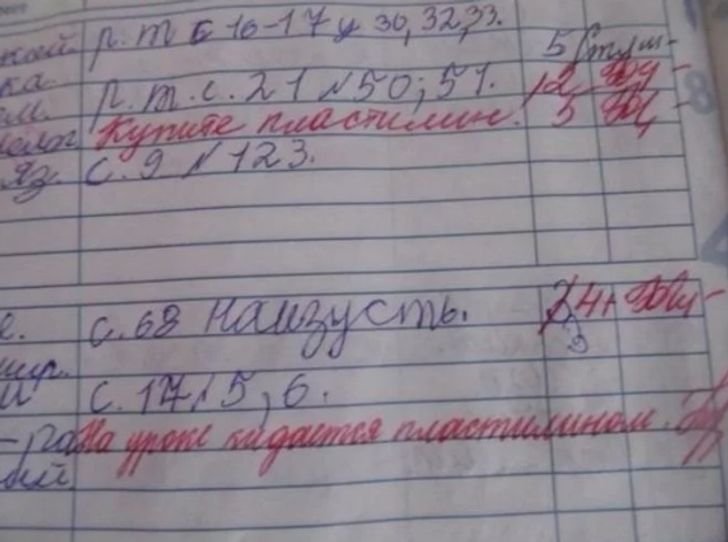 р. т с 16-17 у 30, 32, 33.
ка. р. т. с. 21 № 50; 51. 5
Купите пластилин. 5
яз. с. 9 № 123.
с. 68 наизусть. 4+
с. 17 № 5, 6.
На уроке кидается пластилином.